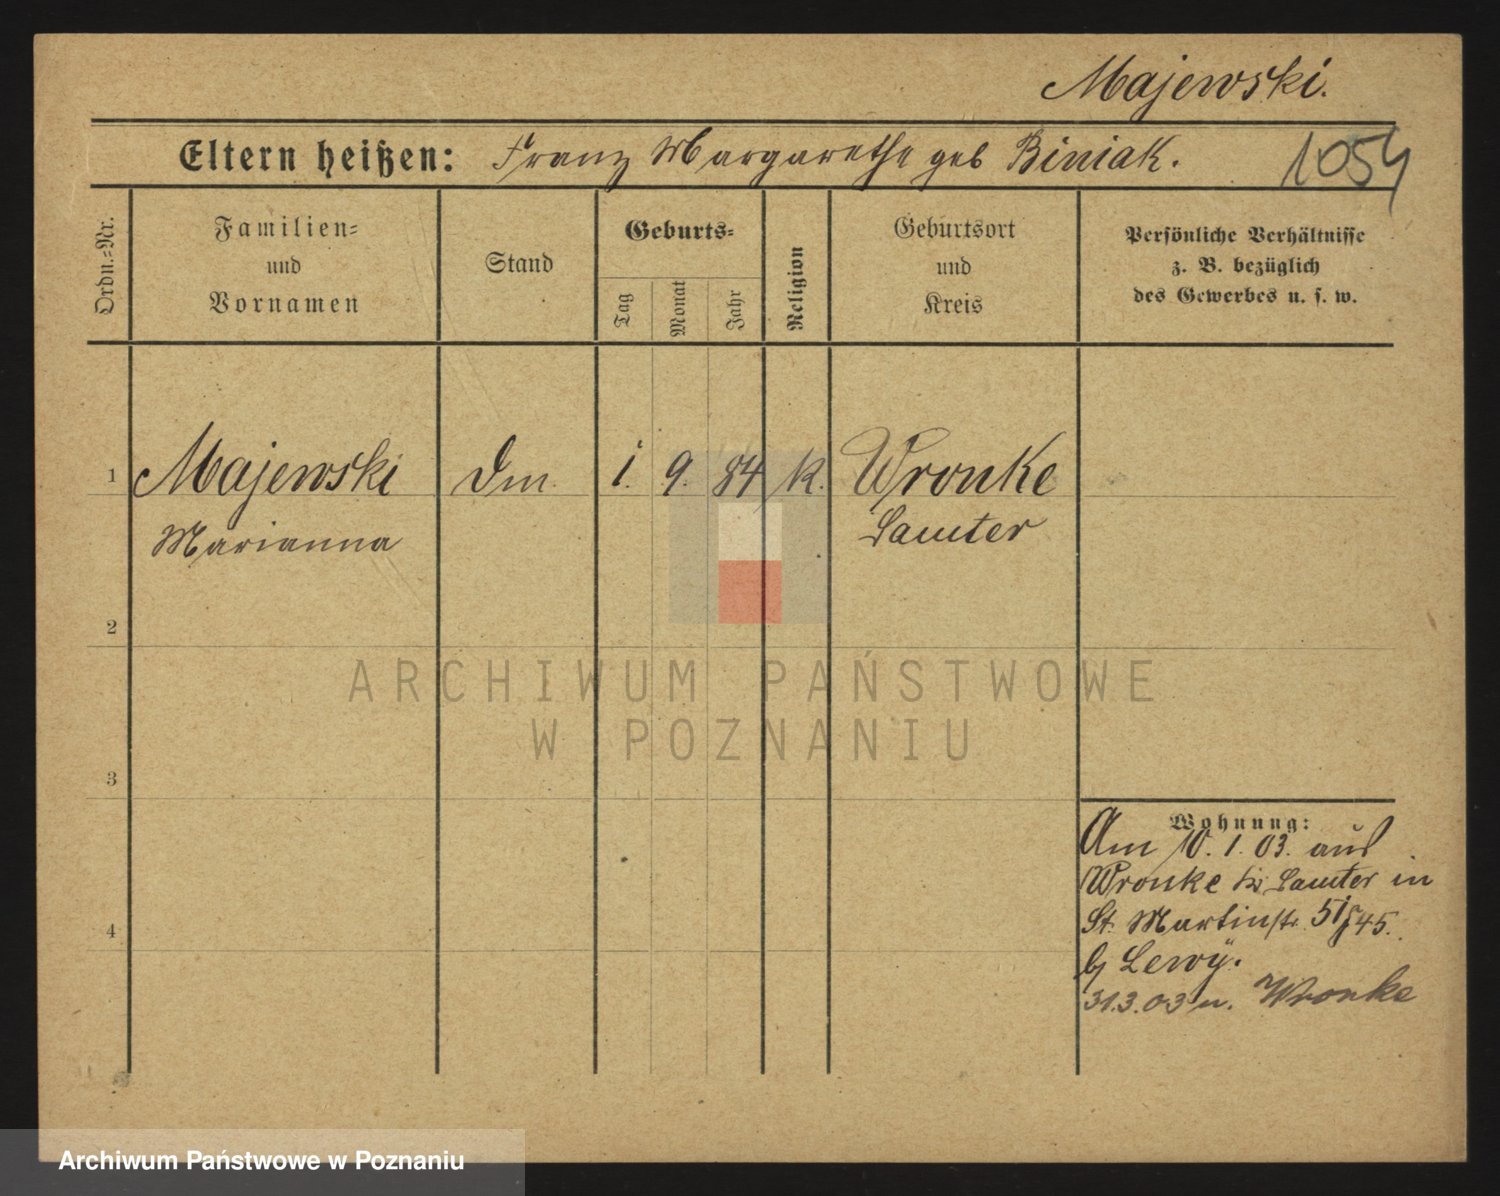 Majewski.
Eltern heißen: Franz Margarethe geb Biniak. 1054
Ordn.=Nr.
Familien=
und
Vornamen
Stand
Geburts=
Tag
Monat
Jahr
Religion
Geburtsort
und
Kreis
Persönliche Verhältnisse
z. B. bezüglich
des Gewerbes u. s. w.
1 Majewski Dm. 1. 9. 84 K. Wronke
Marianna Samter
2
ARCHIWUM PAŃSTWOWE
W POZNANIU
3
Wohnung:
Am 10. 1. 03. aus
Wronke Samter in
4 St. Martinstr. 51/45.
b/ Lewy.
31.3.03 n. Wronke
Archiwum Państwowe w Poznaniu